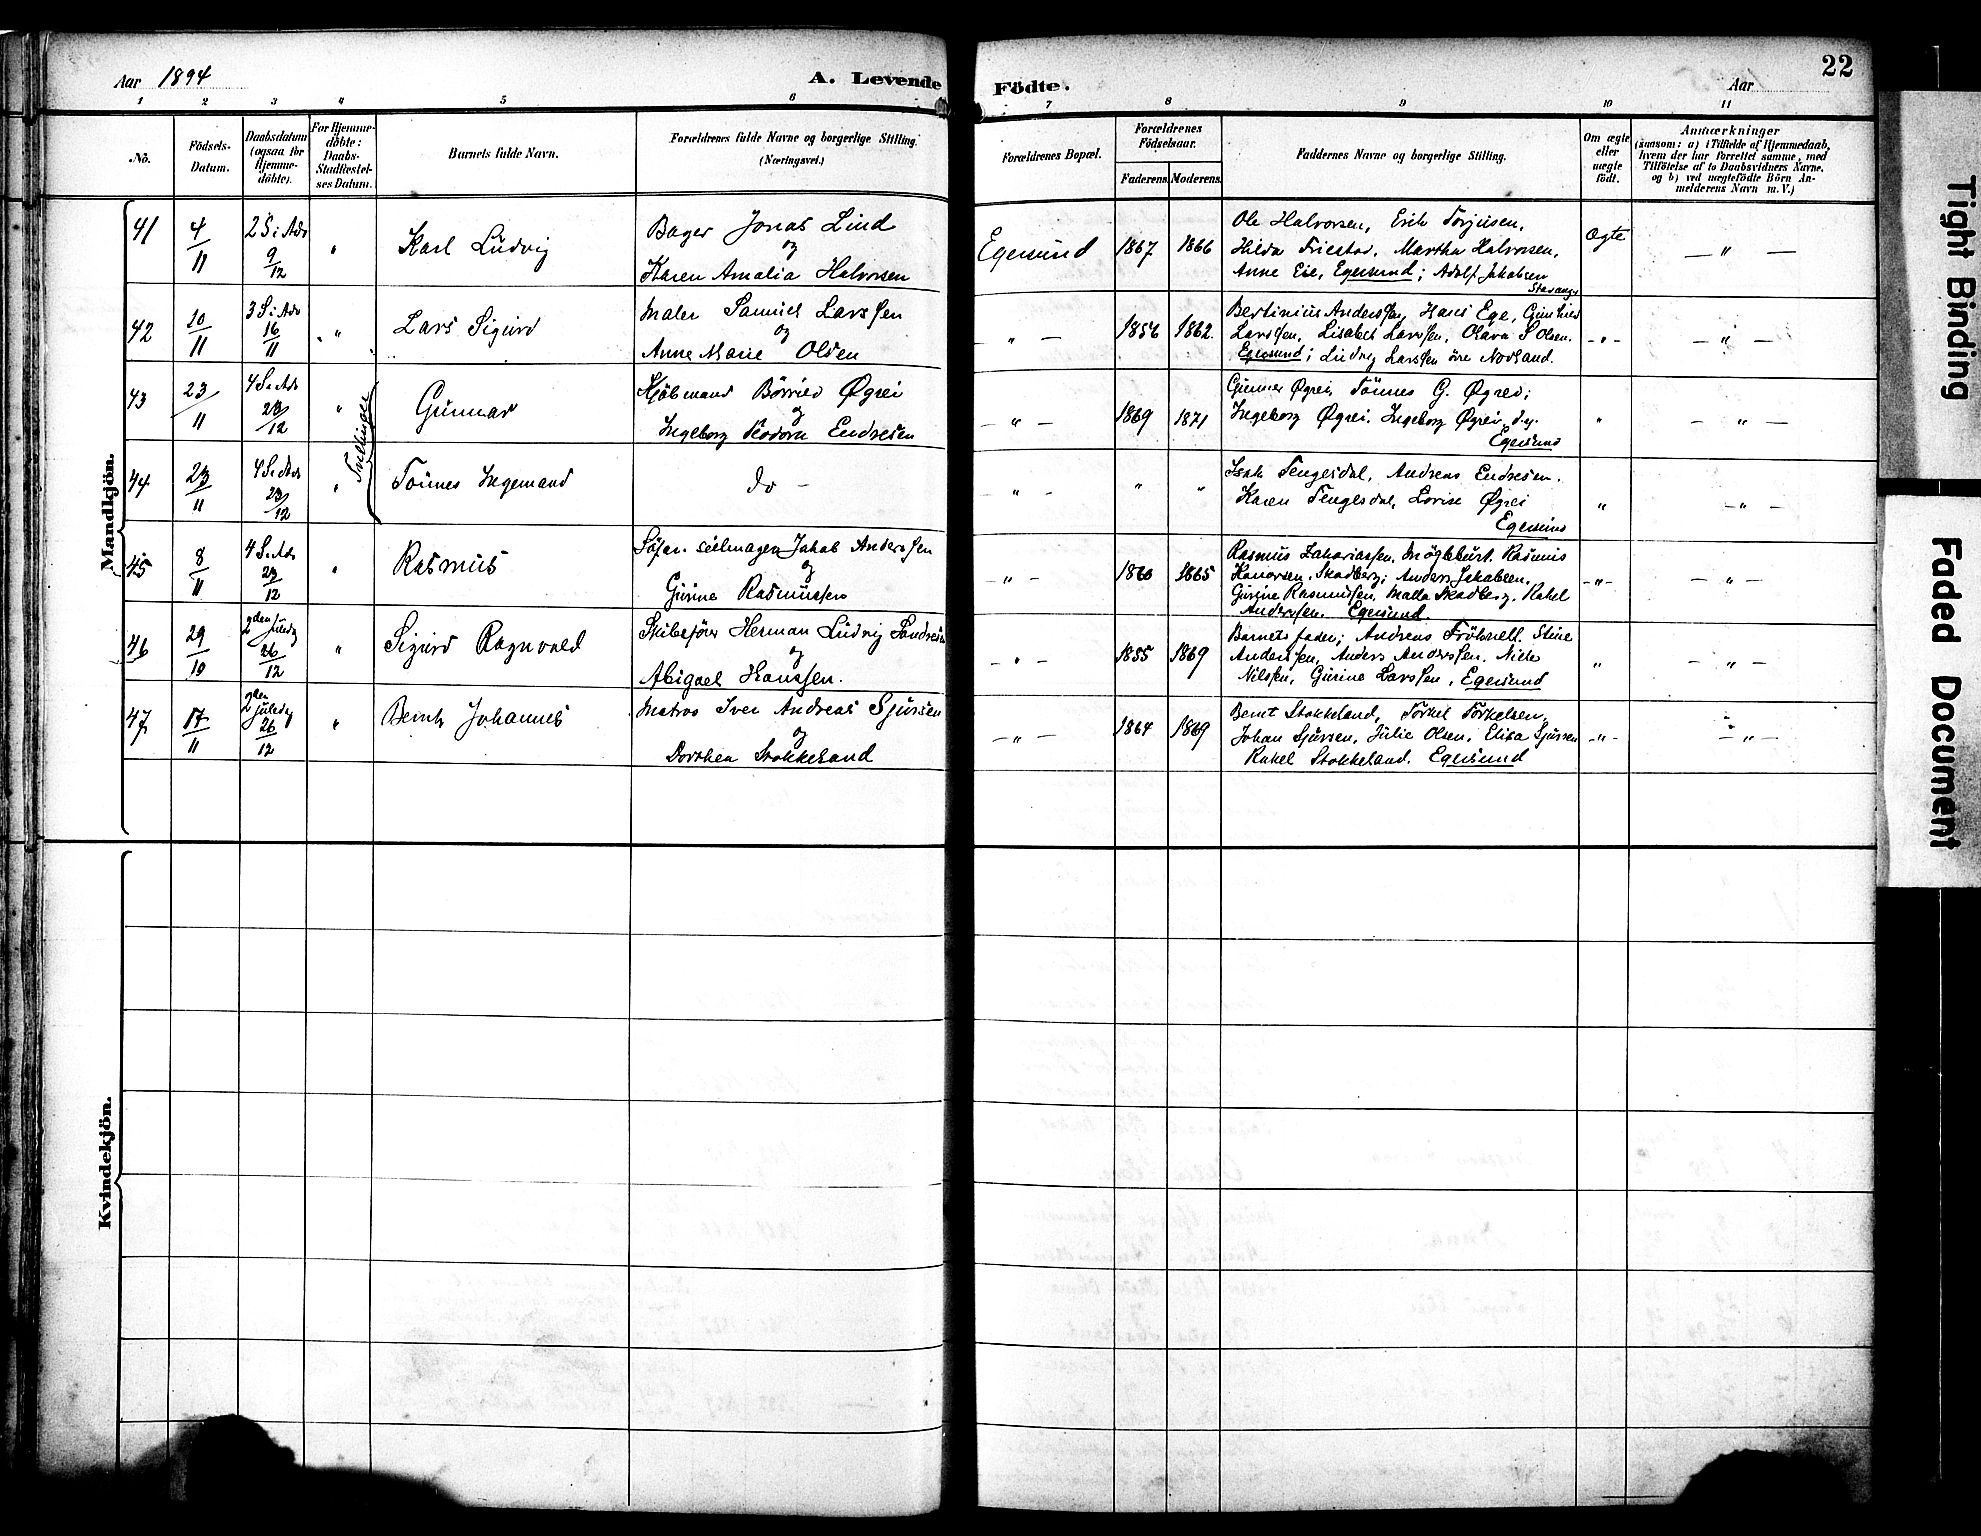 Aar 1894
A. Levende Födte.
22
Aar
1 2 3 4 5 6 7 8 9 10 11
No.
Födsels-
Datum.
Daabsdatum
(ogsaa for
Hjemme-
döbte).
For Hjemme-
döbte:
Daabs-
Stadfæstel-
ses Datum.
Barnets fulde Navn.
Forældrenes fulde Navne og borgerlige Stilling.
(Næringsvei.)
Forældrenes Bopæl.
Forældrenes
Födselsaar.
Faderens. Moderens.
Faddernes Navne og borgerlige Stilling.
Om ægte
eller
uægte
födt.
Anmærkninger
(saasom: a) i Tilfælde af Hjemmedaab,
hvem der har forrettet samme, med
Tilföielse af to Daabsvidners Navne,
og b) ved uægtefödte Börn An-
melderens Navn m. V.)
Mandkjön.
41
4/11
2 S. i Adv
9/12
"
Karl Ludvig
Bager Jonas Lind
og
Karen Amalia Halvorsen
Egersund
1867 1866
Ole Halvorsen, Erik Torjusen,
Hilda Friestad, Martha Halvorsen,
Anne Eie, Egersund; Adolf Jakobsen
Stavanger
Ægte
— " —
42
10/11
3 S. i Adv
16/11
"
Lars Sigurd
Maler Samuel Larssen
og
Anne Marie Olsen
" —
1856 1862.
Bertinius Anderssen, Hans Ege,
Larssen, Lisabet Larssen, Olava S Olsen.
Egersund; Ludvig Larssen öre Nodland.
- " -
— " —
43
23/11
4 S. i Adv
23/12
"
Tvillinger
Gunnar
Kjöbmand Börried Øgrei
og
Ingeborg Teodora Endresen
— " —
1869 1871
Gunner Øgrei, Tönnes G. Øgrei;
Ingeborg Øgrei, Ingeborg Øgrei d.y.
Egersund
"
— " —
44
23/11
4 S. i Adv
23/12
"
Tönnes Ingemand
do —
— " —
" "
Isak Tengesdal, Andreas Endresen.
Karen Tengesdal, Lovise Øgrei
Egersund
"
— " —
45
8/11
4 S. i Adv
23/12
"
Rasmus
Jakob Anderssen
og
Gurine Rasmussen
— " —
1860 1865
Rasmus Zakariassen, Rasmus
Skadberg; Anders Jakobsen,
Gurine Rasmussen, Malla Skadberg, Rakel
Anderssen. Egersund.
- " -
— " —
46
29/10
2den Juledg
26/12
"
Sigurd Ragnvald
Skibsförer Herman Ludvig
og
Abigael Hanssen.
— " —
1855 1869
Barnets fader; Andreas Stine
Anderssen, Anders Anderssen.
Nilssen, Gurine Larssen, Egersund
"
— " —
47
17/11
2den Juledg
26/12
"
Bernt Johannes
Matros Iver Andreas Sjursen
og
Dorthea Stokkeland
— " —
1864 1869
Bernt Stokkeland, Torkel Torkelsen,
Johan Sjursen, Julie Olsen, Elisa Sjursen
Rakel Stokkeland. Egersund
- " -
— " —
Kvindekjön.
Tight Binding
Faded Document